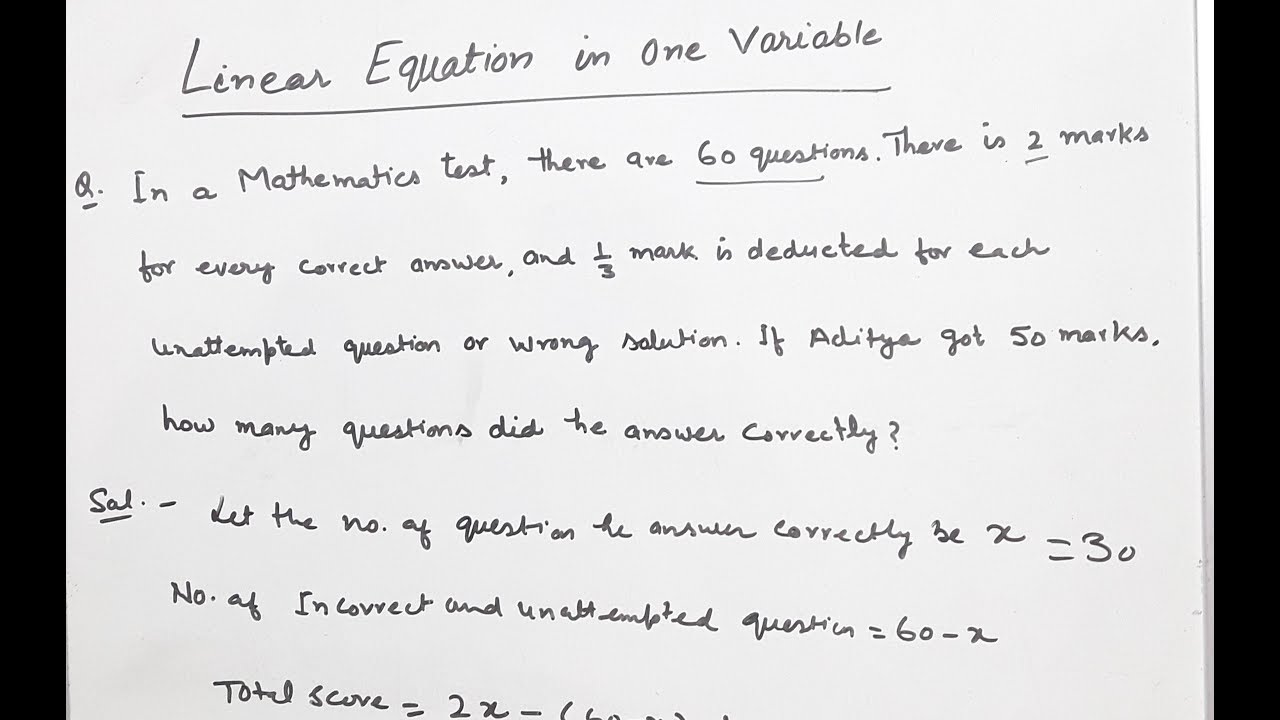 Linear Equation in One Variable
Q. In a Mathematics test, there are 60 questions. There is 2 marks
for every correct answer, and 1/3 mark is deducted for each
unattempted question or wrong solution. If Aditya got 50 marks.
how many questions did he answer correctly?
Sol. - Let the no. of question he answer correctly be x = 30
No. of Incorrect and unattempted question = 60 - x
Total score = 2x - (60